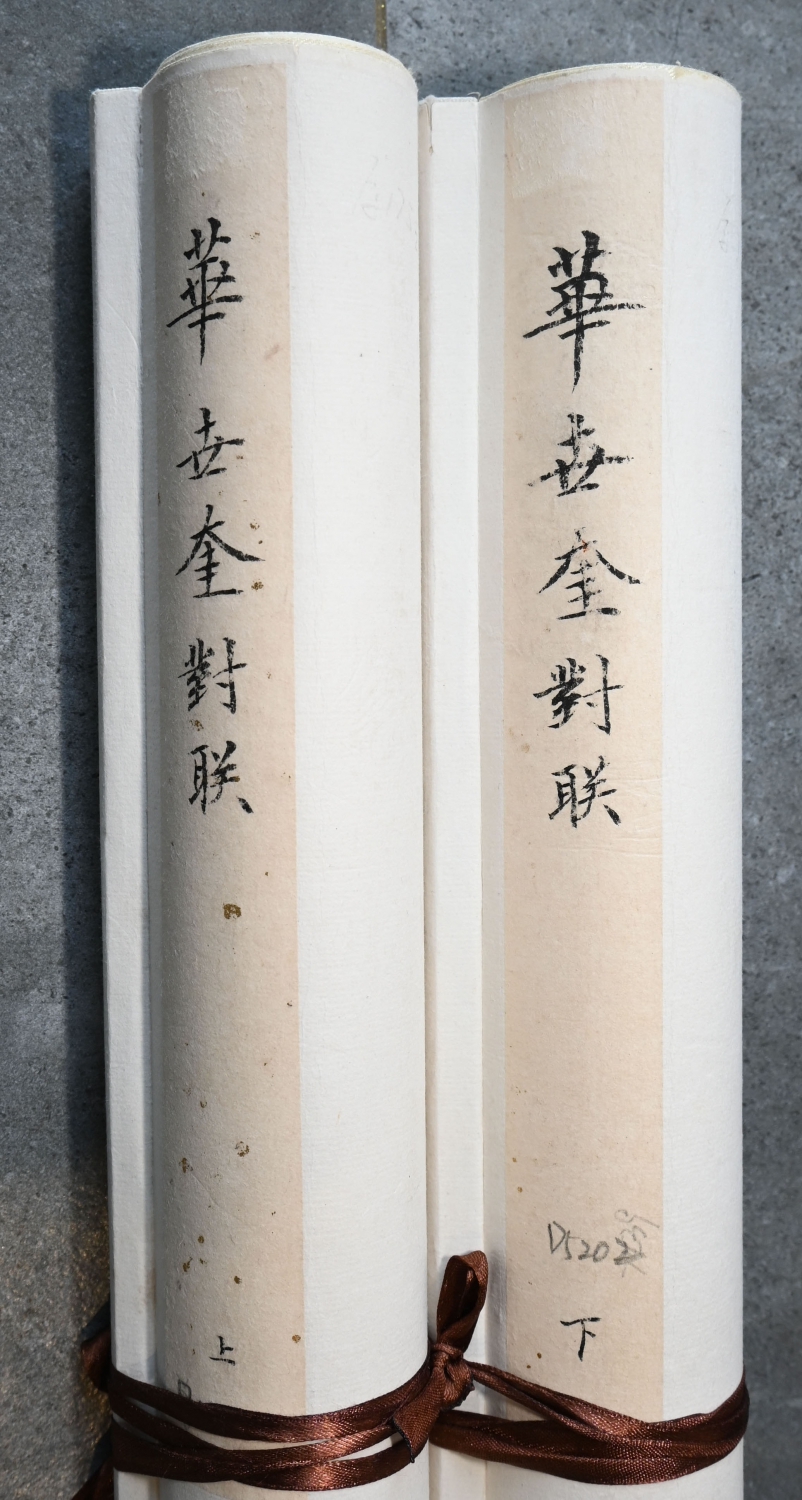 華世奎對联
上
華世奎對联
D5202
下